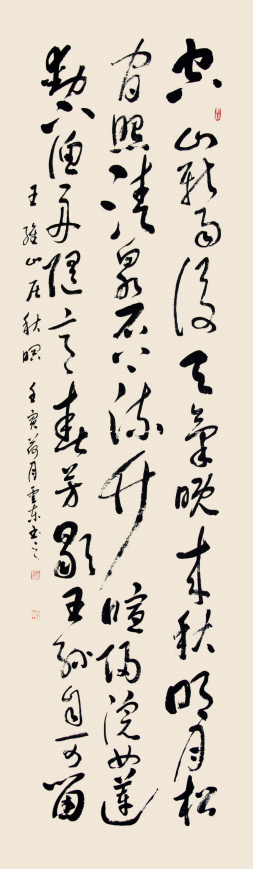 空山新雨後天氣晚来秋明月松
間照清泉石上流竹喧歸浣女蓮
動下漁舟隨意春芳歇王孫自可留
王維山居秋暝 壬寅荷月雲東書之